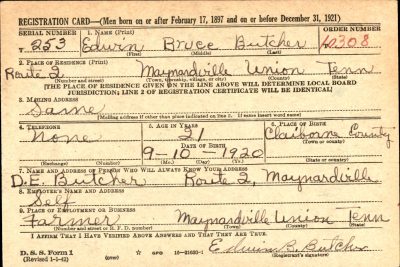 REGISTRATION CARD—(Men born on or after February 17, 1897 and on or before December 31, 1921)
SERIAL NUMBER 1. NAME (Print) ORDER NUMBER
T 253 Edwin Bruce Butcher 10308
2. PLACE OF RESIDENCE (Print)
Route 2 Maynardville Union Tenn
(Number and street) (Town, township, village, or city) (County) (State)
[THE PLACE OF RESIDENCE GIVEN ON THE LINE ABOVE WILL DETERMINE LOCAL BOARD
JURISDICTION; LINE 2 OF REGISTRATION CERTIFICATE WILL BE IDENTICAL]
3. MAILING ADDRESS
Same
[Mailing address if other than place indicated on line 2. If same insert word same]
4. TELEPHONE 5. AGE IN YEARS 6. PLACE OF BIRTH
None 21 Claiborne County
DATE OF BIRTH (Town or county)
9-10-1920
(Exchange) (Number) (Mo.) (Day) (Yr.) (State or country)
7. NAME AND ADDRESS OF PERSON WHO WILL ALWAYS KNOW YOUR ADDRESS
D.E. Butcher Route 2, Maynardville
8. EMPLOYER'S NAME AND ADDRESS
Self
9. PLACE OF EMPLOYMENT OR BUSINESS
Farmer Maynardville Union Tenn
(Number and street or R. F. D. number) (Town) (County) (State)
I AFFIRM THAT I HAVE VERIFIED ABOVE ANSWERS AND THAT THEY ARE TRUE.
D. S. S. Form 1 Edwin B. Butcher
(Revised 1-1-42) (over) (Registrant's signature)